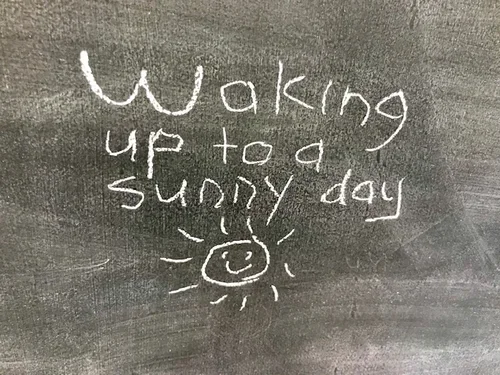 Waking
up to a
sunny day